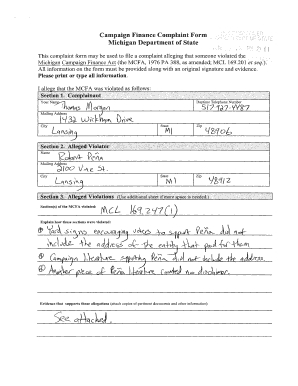 Campaign Finance Complaint Form
Michigan Department of State
This complaint form may be used to file a complaint alleging that someone violated the
Michigan Campaign Finance Act (the MCFA, 1976 PA 388, as amended; MCL 169.201 et seq.).
All information on the form must be provided along with an original signature and evidence.
Please print or type all information.
I allege that the MCFA was violated as follows:
Section 1. Complainant
Your Name Daytime Telephone Number
Thomas Morgan 517-927-
Mailing Address
1432 Wickham Drive
City State Zip
Lansing MI 48906
Section 2. Alleged Violator
Name
Robert Peña
Mailing Address
2100 Vine St.
City State Zip
Lansing MI 48912
Section 3. Alleged Violations (Use additional sheet if more space is needed.)
Section(s) of the MCFA violated:
MCL 169.247(1)
Explain how those sections were violated:
Yard signs encouraging voters to support Peña did not
include the address of the entity that paid for them
Campaign literature supporting Peña did not include the address.
Another piece of Peña literature contained no disclaimer.
Evidence that supports those allegations (attach copies of pertinent documents and other information)
See attached.